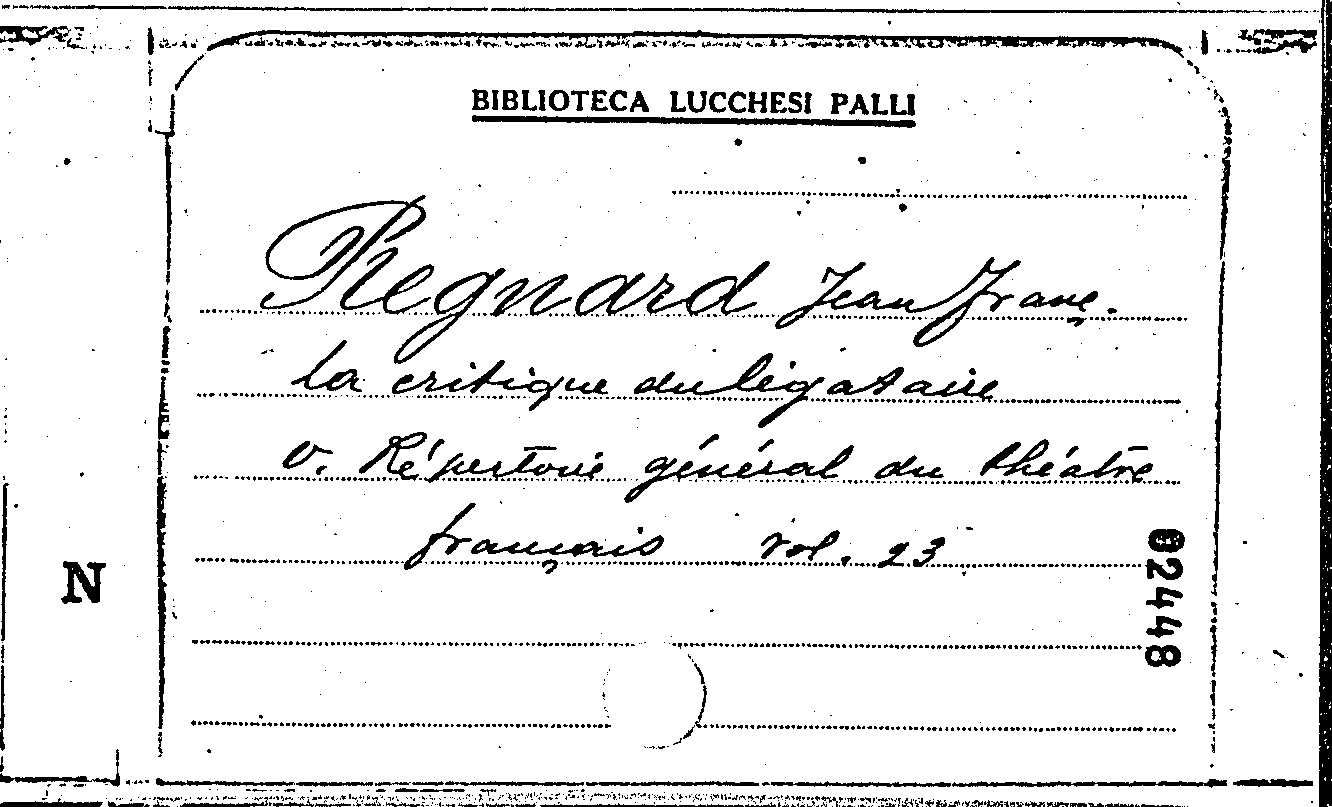 BIBLIOTECA LUCCHESI PALLI
Regnard Jean Franç.
La critique du légataire
v. Répertoire général du théâtre
français vol. 23
N
02448